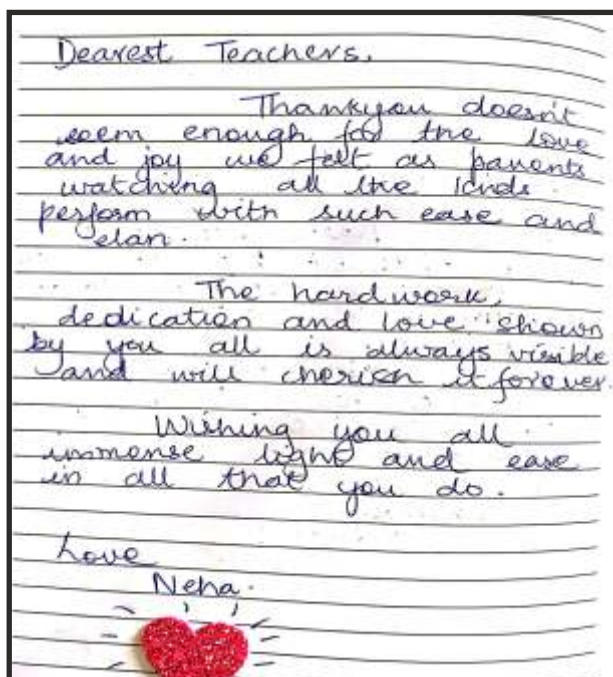 Dearest Teachers.
Thankyou doesn't
seem enough for the love
and joy we felt as parents
watching all the kids
perform with such ease and
elan.
The hardwork,
dedication and love shown
by you all is always visible
and will cherish it forever.
Wishing you all
immense light and ease
in all that you do.
Love
Neha.